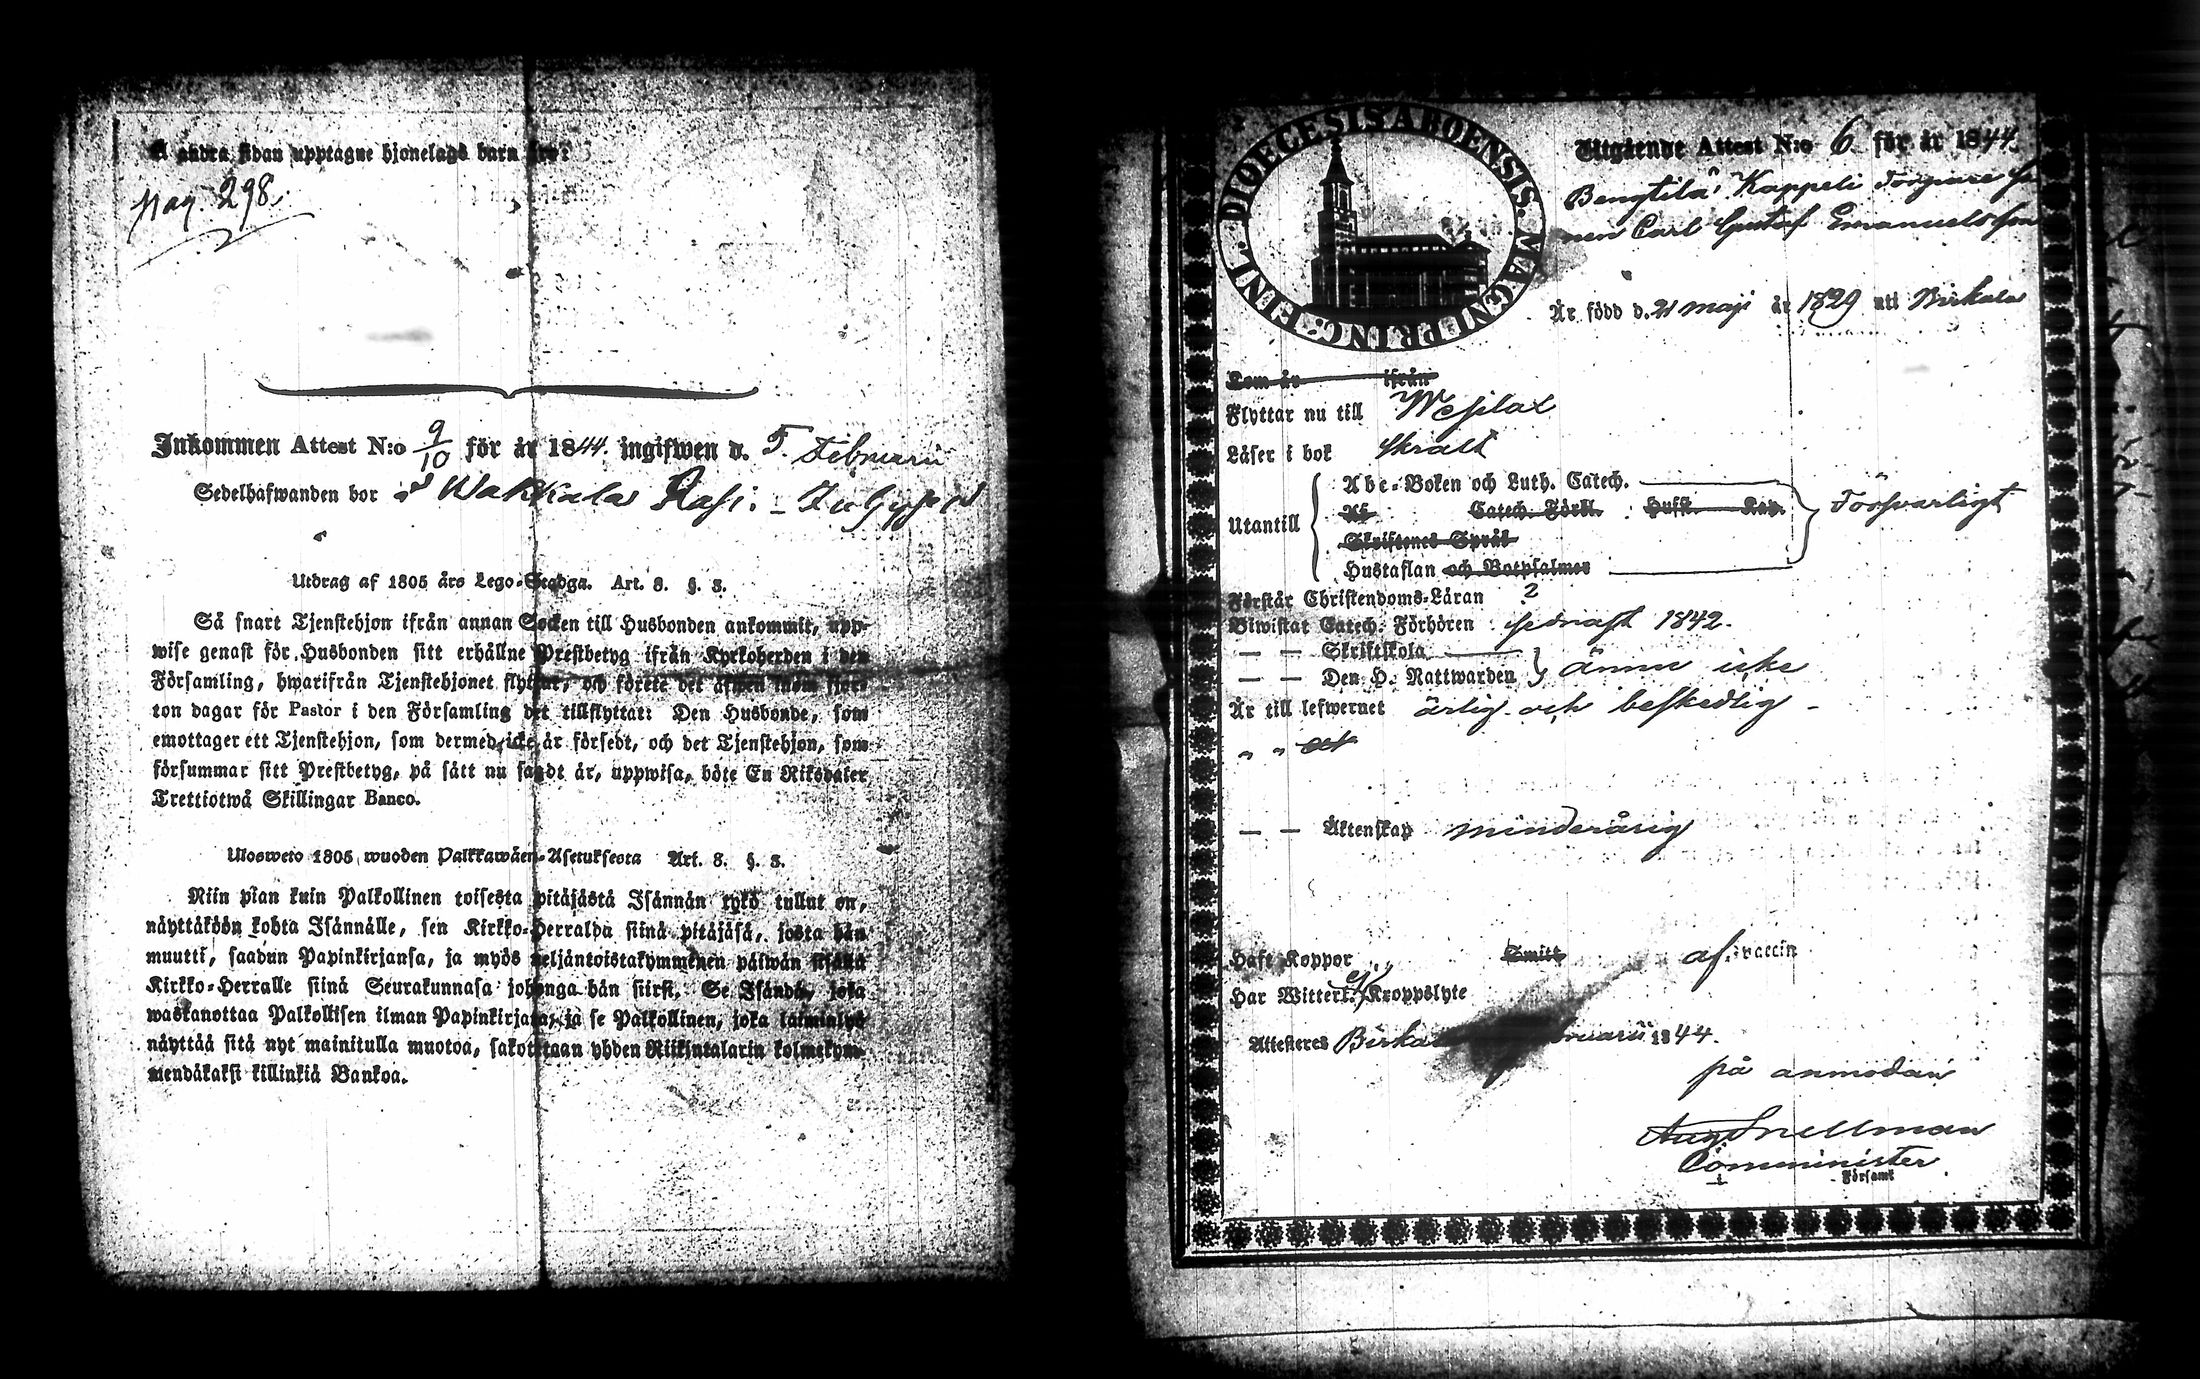 Å andra sidan upptagne hjonelags barn äro:
pag. 298.
Inkommen Attest N:o 9/10 för år 1844. ingifwen d. 5. Februari
Sedelhafwanden bor å Wakkala Rasi.
Utdrag af 1805 års Lego-Stadga. Art. 8. §. 3.
Så snart Tjenstehjon ifrån annan Socken till Husbonden ankommit, upp-
wise genast för Husbonden sitt erhållne Prestbetyg ifrån Kyrkoherden i den
Församling, hwarifrån Tjenstehjonet flyttar, och förete det äfwen inom fjor-
ton dagar för Pastor i den Församling det tillflyttat: Den Husbonde, som
emottager ett Tjenstehjon, som dermed icke är försedt, och det Tjenstehjon, som
försummar sitt Prestbetyg, på sätt nu sagdt är, uppwisa, böte En Riksdaler
Trettiotwå Skillingar Banco.
Ulosweto 1805 wuoden Palkkawäen-Asetuksesta Art. 8. §. 3.
Niin pian kuin Palkollinen toisesta pitäjästä Isännän tykö tullut on,
näyttäköön kohta Isännälle, sen Kirkko-Herralda siinä pitäjäsä, josta hän
muutti, saadun Papinkirjansa, ja myös neljäntoistakymmenen päiwän sisällä
Kirkko-Herralle siinä Seurakunnasa johonga hän siirsi. Se Isändä, joka
wastanottaa Palkollisen ilman Papinkirjata, ja se Palkollinen, joka laiminlyö
näyttää sitä nyt mainitulla muotoa, sakotetaan yhden Riikintalarin kolmekym-
mendäkaksi killinkiä Bankoa.
DIOECESIS ABOENSIS. MAGNI PRINC: FINL.
Utgående Attest N:o 6 för år 1844.
Bengtilä, Kappeli Torpare So
nen Carl Gustaf Emanuelsson
Är född d. 21 maji år 1829 uti Birkala
Kom år ifrån
Flyttar nu till Wesilax
Läser i bok skralt
Utantill
Abc-Boken och Luth. Catech.
Af Catech. Förkl. Husst. Kap.
Skriftenes Språk
Hustaflan och Botpsalmer
Försvarligt
Förstår Christendoms-Läran ?
Biwistat Catech. Förhören sednast 1842.
— — Skriftskola
— — Den H. Nattwarden
ännu icke
Är till lefwernet ärlig och beskedlig
" " och
— — Äktenskap minderårig
Haft Koppor Smitt af vaccin
Har Witterl. ej Kroppslyte
Attesteres Birka ruarii 1844.
på anmodan
Aug Snellman
Comminister
i Förfaml